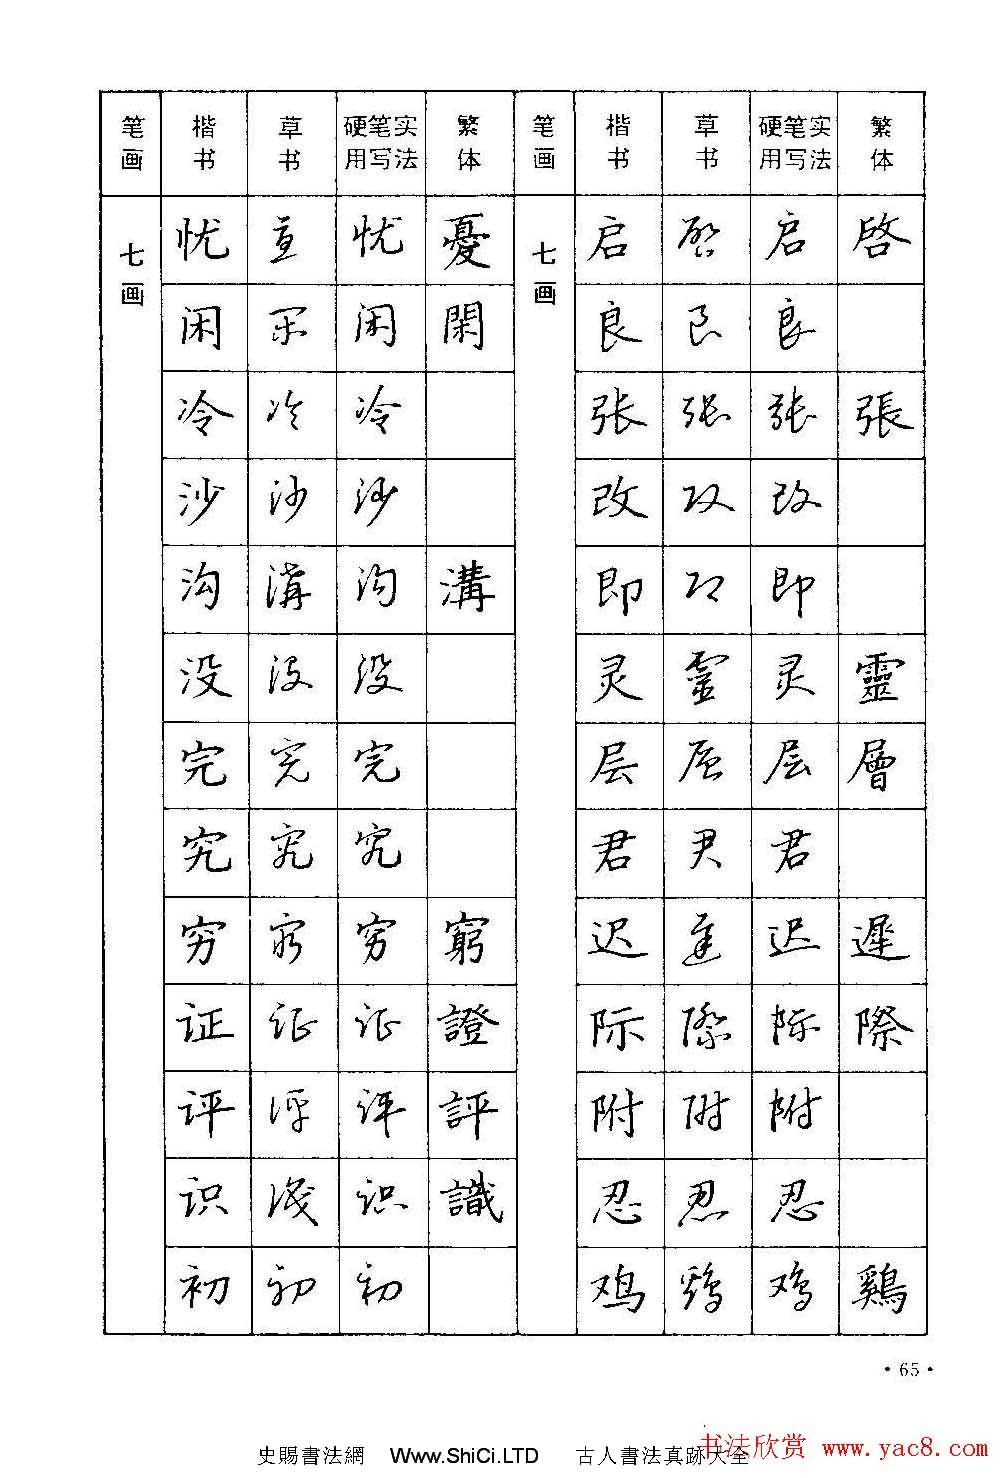 笔画 楷书 草书 硬笔实用写法 繁体 笔画 楷书 草书 硬笔实用写法 繁体
七画 忧 忧 忧 憂 七画 启 启 启 啓
闲 闲 闲 閑 良 良 良
冷 冷 冷 张 张 张 張
沙 沙 沙 改 改 改
沟 溝 沟 溝 即 即 即
没 没 没 灵 靈 灵 靈
完 完 完 层 层 层 層
究 究 究 君 君 君
穷 穷 穷 窮 迟 迟 迟 遲
证 证 证 證 际 際 际 際
评 评 评 評 附 附 附
识 识 识 識 忍 忍 忍
初 初 初 鸡 鸡 鸡 鷄
·65·
史賜書法網 Www.ShiCi.LTD 古人書法真跡大全
书法欣赏 www.yac8.com